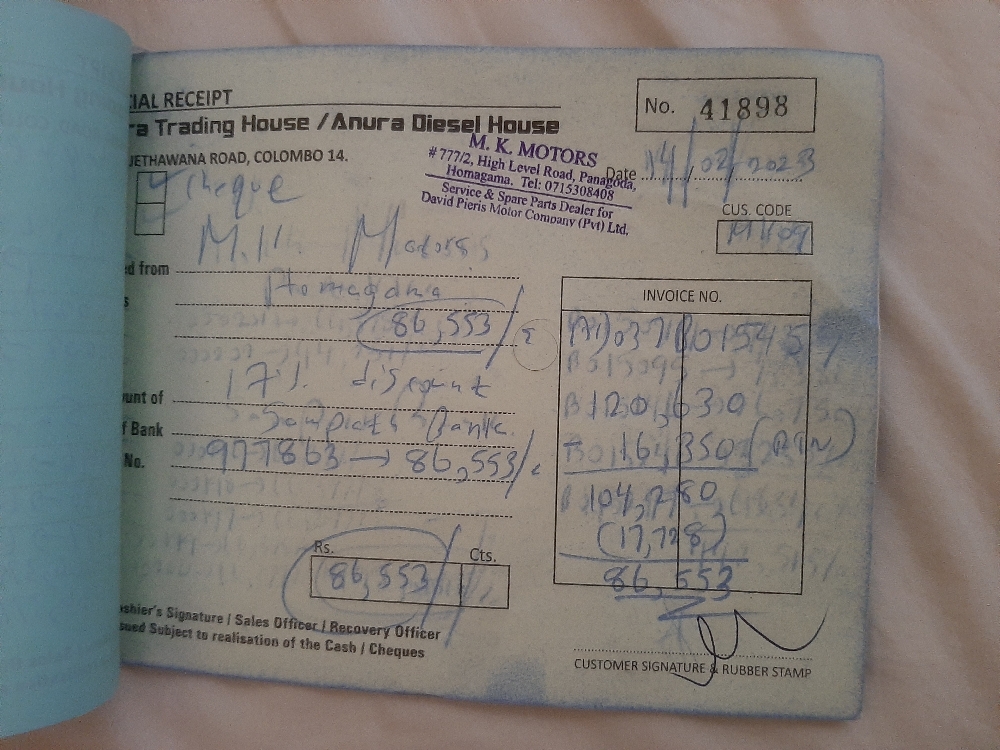 IAL RECEIPT
No. 41898
ra Trading House / Anura Diesel House
JETHAWANA ROAD, COLOMBO 14.
M. K. MOTORS
# 777/2, High Level Road, Panagoda,
Homagama. Tel: 0715308408
Service & Spare Parts Dealer for
David Pieris Motor Company (Pvt) Ltd.
Date 14/02/2023
Cheque
CUS. CODE
ed from M.K. Motors
Homagama
86,553/
17% discount
unt of
f Bank Sampath Bank.
No. 977863 → 86,553/
INVOICE NO.
120,630
16,350 (RTN)
104,280
(17,728)
86,553
Rs. Cts.
86,553/
ashier's Signature / Sales Officer / Recovery Officer
sued Subject to realisation of the Cash / Cheques
CUSTOMER SIGNATURE & RUBBER STAMP